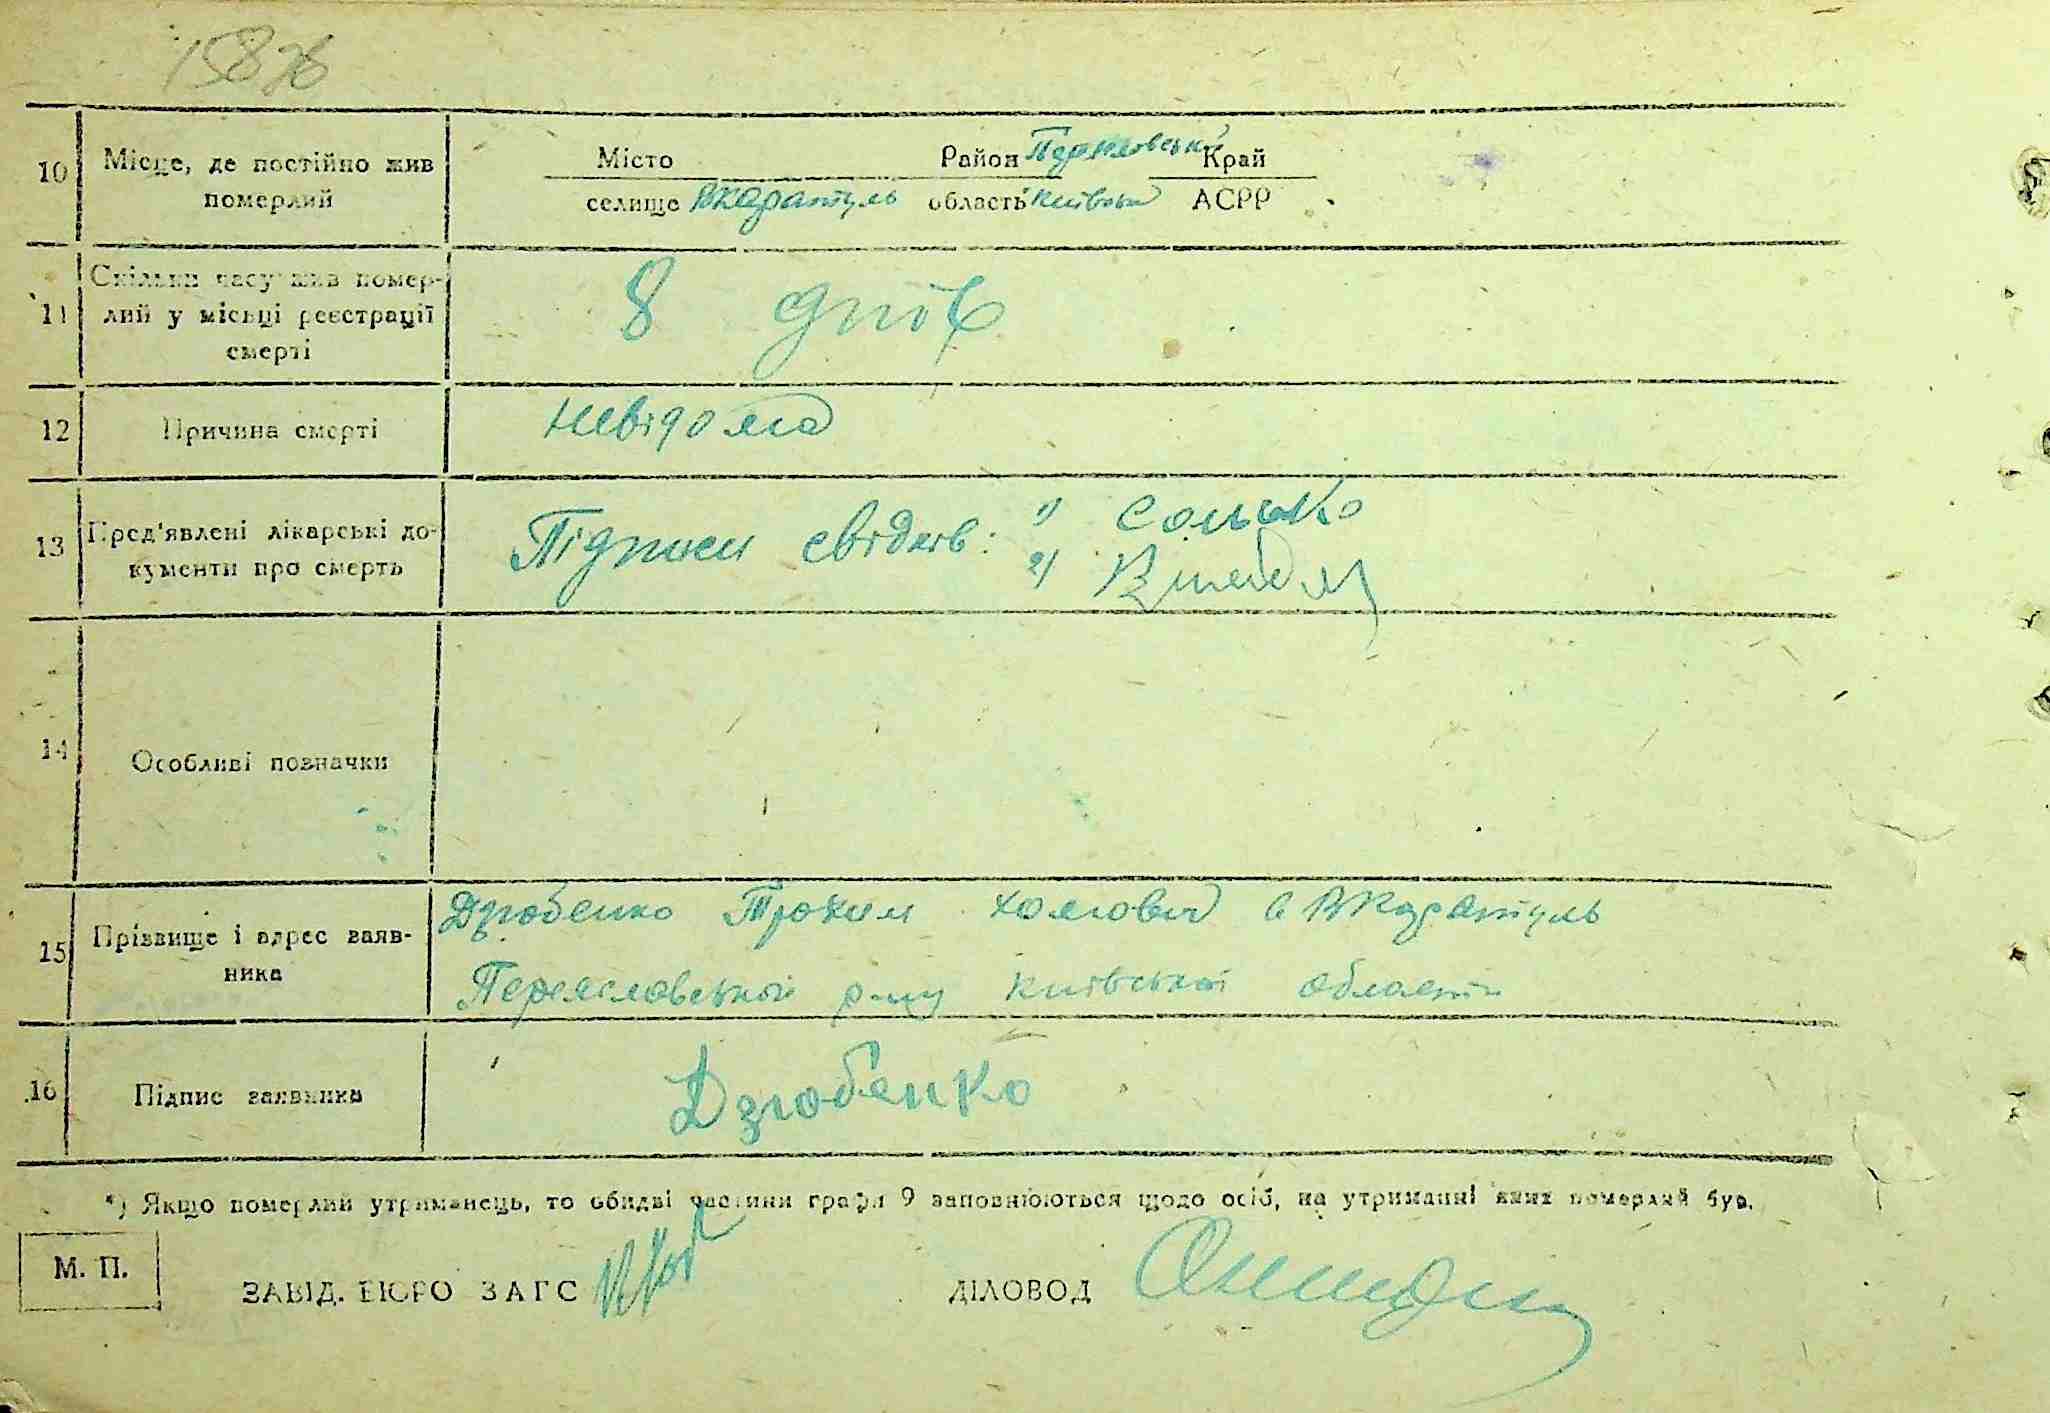 15876
10 Місце, де постійно жив Місто Район Переяславський Край
померлий селище Вкаратуль область Київська АСРР
Скільки часу жив помер-
11 лий у місьці реєстрації 8 днів
смерті
12 Причина смерті невідома
13 Пред'явлені лікарські до- Підписи свідків: 1) Сонько
кументи про смерть 2)
14 Особливі позначки
15 Прізвище і адрес заяв- Дзюбенко Трохим Хомович с Вкаратуль
ника Переяславської р-ну Київської області
16 Підпис заявника Дзюбенко
*) Якщо померлий утриманець, то обидві частини графи 9 заповнюються щодо осіб, на утриманні яких померлий був.
М. П.
ЗАВІД. БЮРО ЗАГС ДІЛОВОД